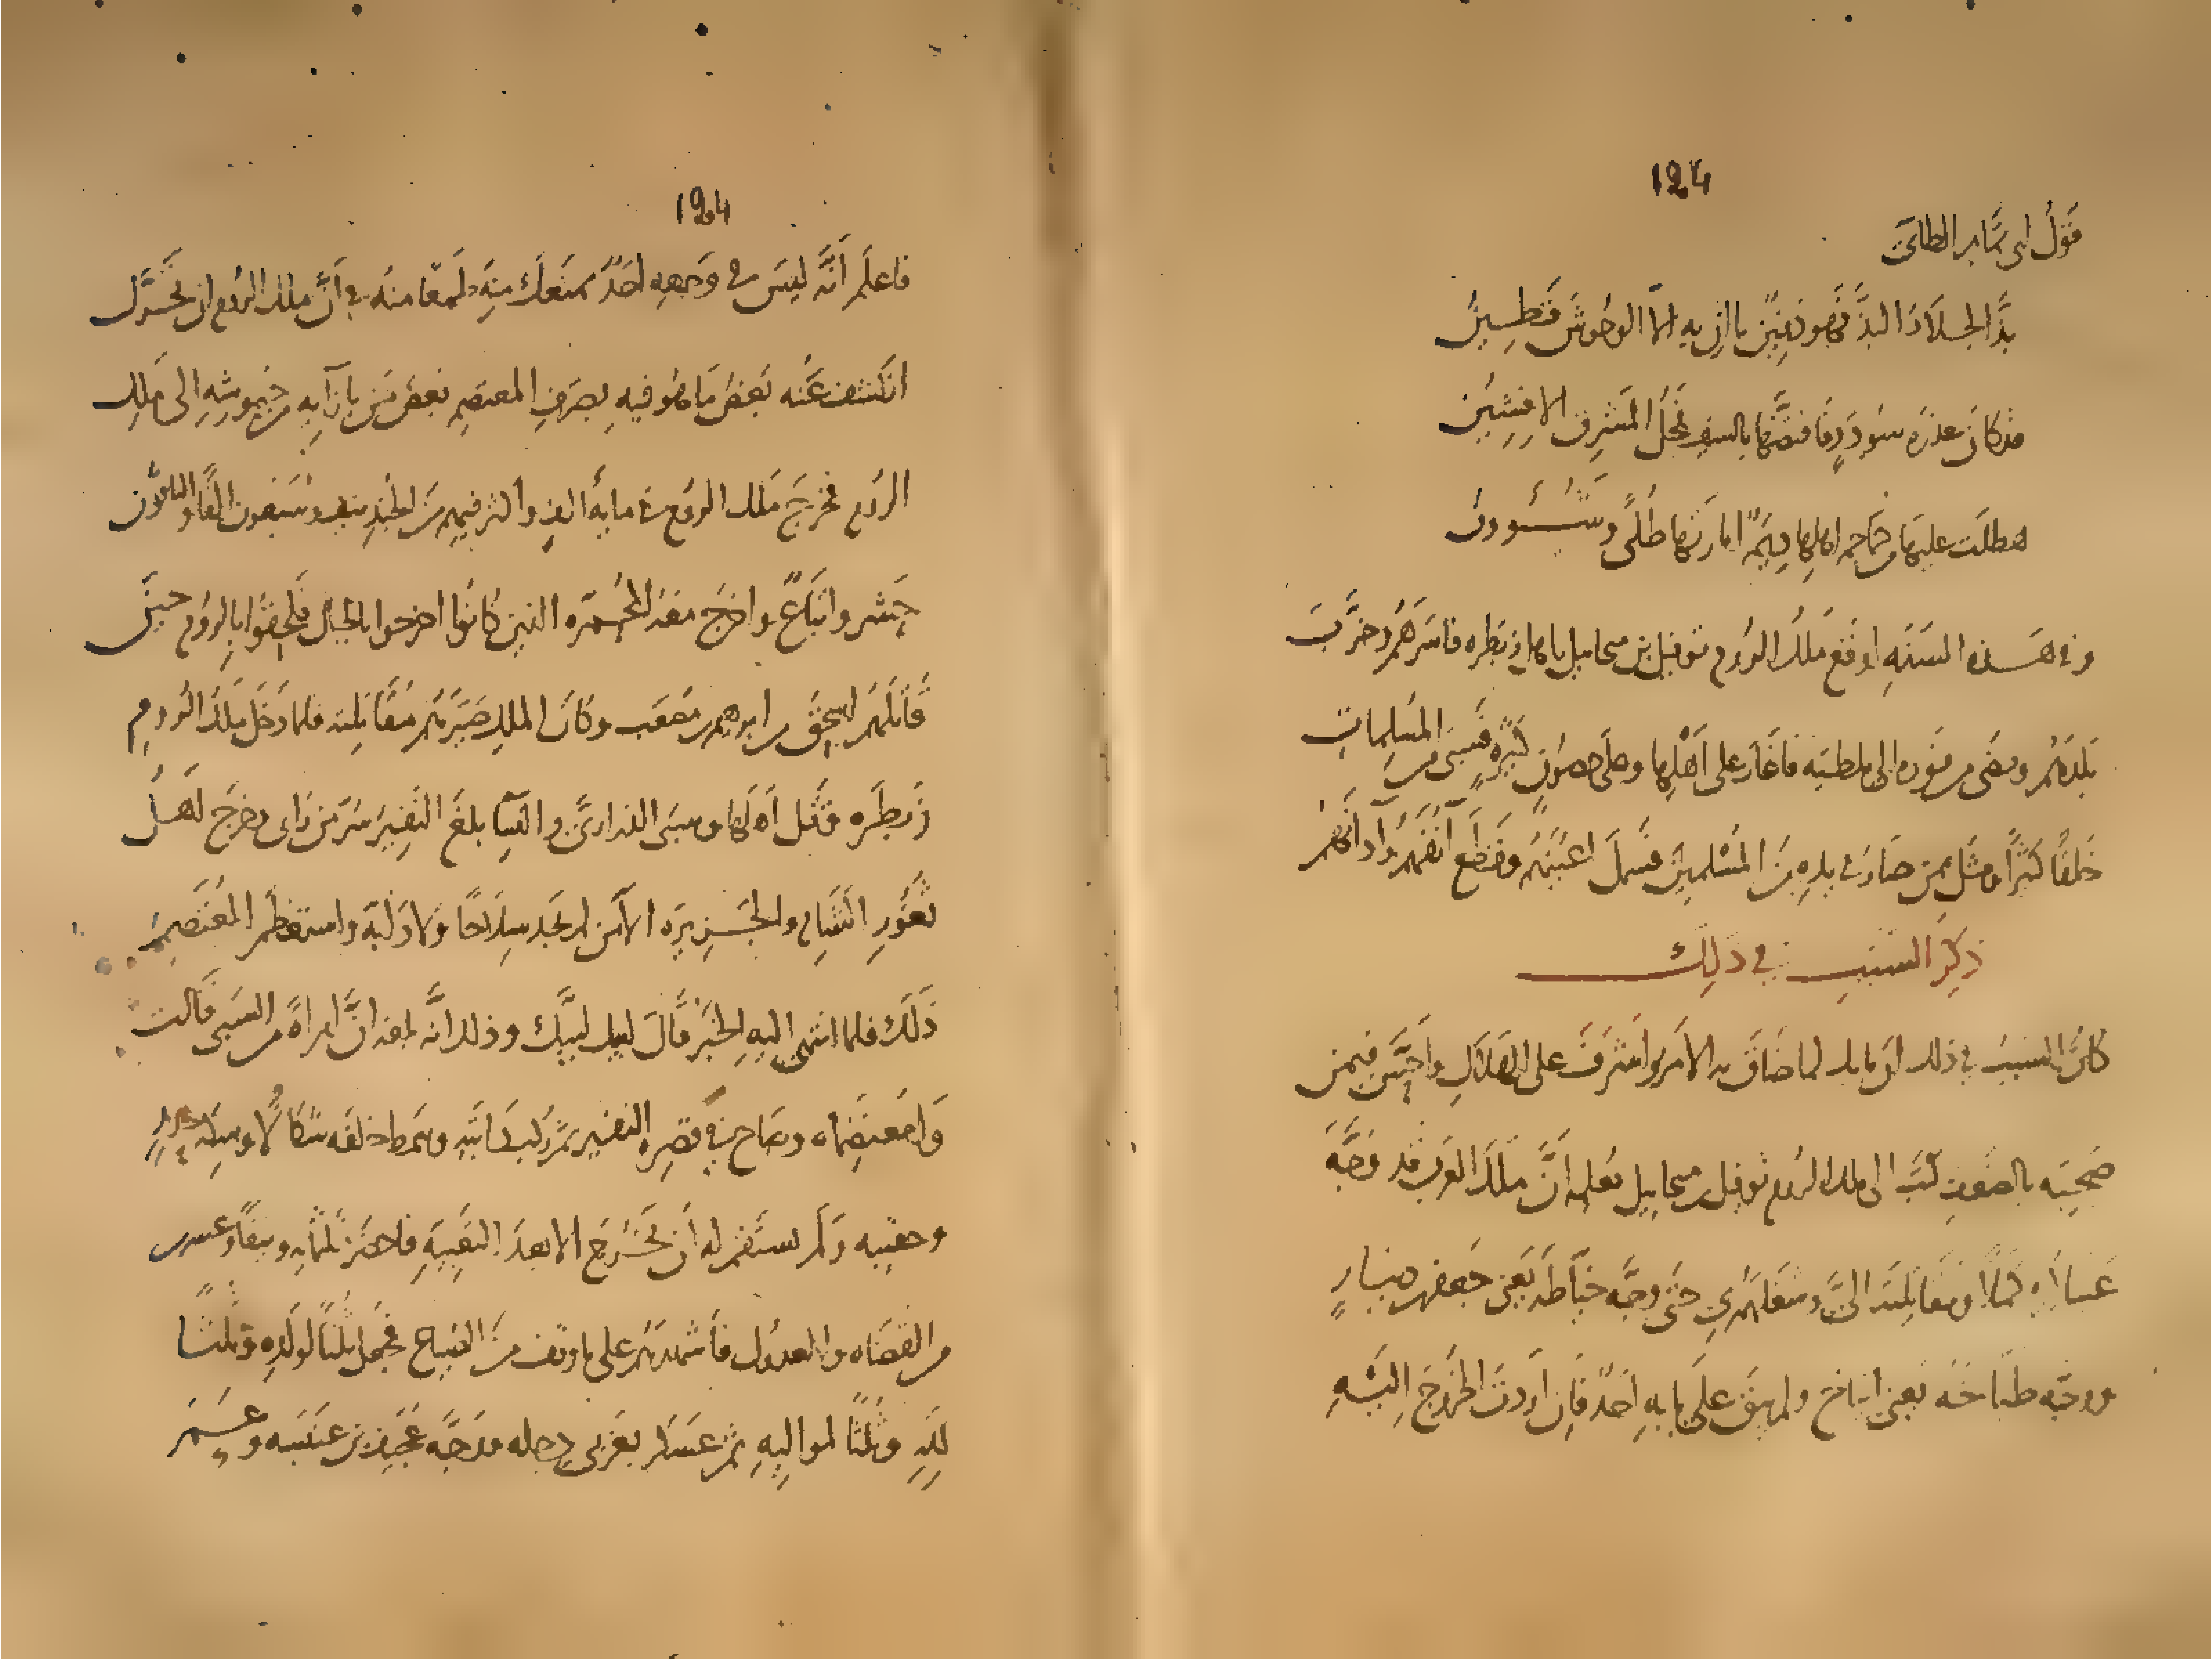 124
قول ابى تمام الطائى
بذ الجلاد البذ فهو دفين ما ان به الا الوحوش قطين
قد كان عذرة سودد فافتضها بالسيف فحل المشرق الافشين
هطلت عليها من جماجم اهلها ديم امارتها طلى وشوون
وفى هذه السنه اوقع ملك الروم توفيل بن ميخاييل باهل زبطره فاسرهم وخرب
بلدهم ومضى من فوره الى ملطيه فاغار على اهلها وعلى حصون كثيره فسبى من المسلمات
خلقا كثيرا ومثل بمن صار فى يده من المسلمين فسمل اعينهم وقطع آنفهم وآذانهم
ذكر السبب فى ذلك
كان السبب فى ذلك ان بابك لما ضاق به الامر واشرف على الهلاك واحس من
ضعف كتب الى ملك الروم توفيل بن ميخاييل يعلمه ان ملك العرب قد وجه
عساكره ومقاتلته الى حتى وجه خياطه يعنى جعفر بن دينار
ووجه طباخه يعنى ايتاخ ولم يبق على بابه احد فان اردت الخروج اليه
124
فاعلم انه ليس فى وجهه احد يمنعك منه طمعا منه فى ان ملك الروم ان تحرك
انكشف عنه بعض ما هو فيه بصرف المعتصم بعض من بازآيه من جيوشه الى ملك
الروم فخرج ملك الروم فى مايه الف واكثر فيهم من الجند نيف وسبعون الفا والباقون
حشر واتباع واخرج معه المحمره الذين كانوا اخرجوا بالجبال فلحقوا بالروم حين
قاتلهم اسحق بن ابرهيم بن مصعب وكان الملك صيرهم مقاتلة فلما دخل ملك الروم
زبطره وقتل اهلها وسبى الذرارى والنسآ بلغ النفير سر من راى وخرج اهل
ثغور الشام والجزيره الا من لم يجد سلاحا ولا دابة واستعظم المعتصم
ذلك فلما انتهى اليه الخبر قال لبيك لبيك وذلك انه بلغه ان امراة من السبى قالت
وا معتصماه وصاح فى قصره النفير ثم ركب دابته وسمط خلفه شكالا وسكة حديد
وحقيبه ولم يستقم له ان يخرج الا بعد التعبية فاحضر ثلثمايه ونيفا وعشرين
من القضاه والعدول فاشهدهم على ما وقف من الضياع فجعل ثلثا لولده وثلثا
لله وثلثا لمواليه ثم عسكر بغربى دجله ووجه عجيف بن عنبسه وعمر